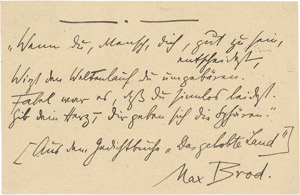 "Wenn du, Mensch, dich, gut zu sein,
entscheidest,
Wigst den Weltenlauf du umgeboren.
Fabel war es, daß du sinnlos leidest.
Gib dein Herz, – dir geben sich die Sphären."
[Aus dem Gedichtbuche "Das gelobte Land"]
Max Brod.